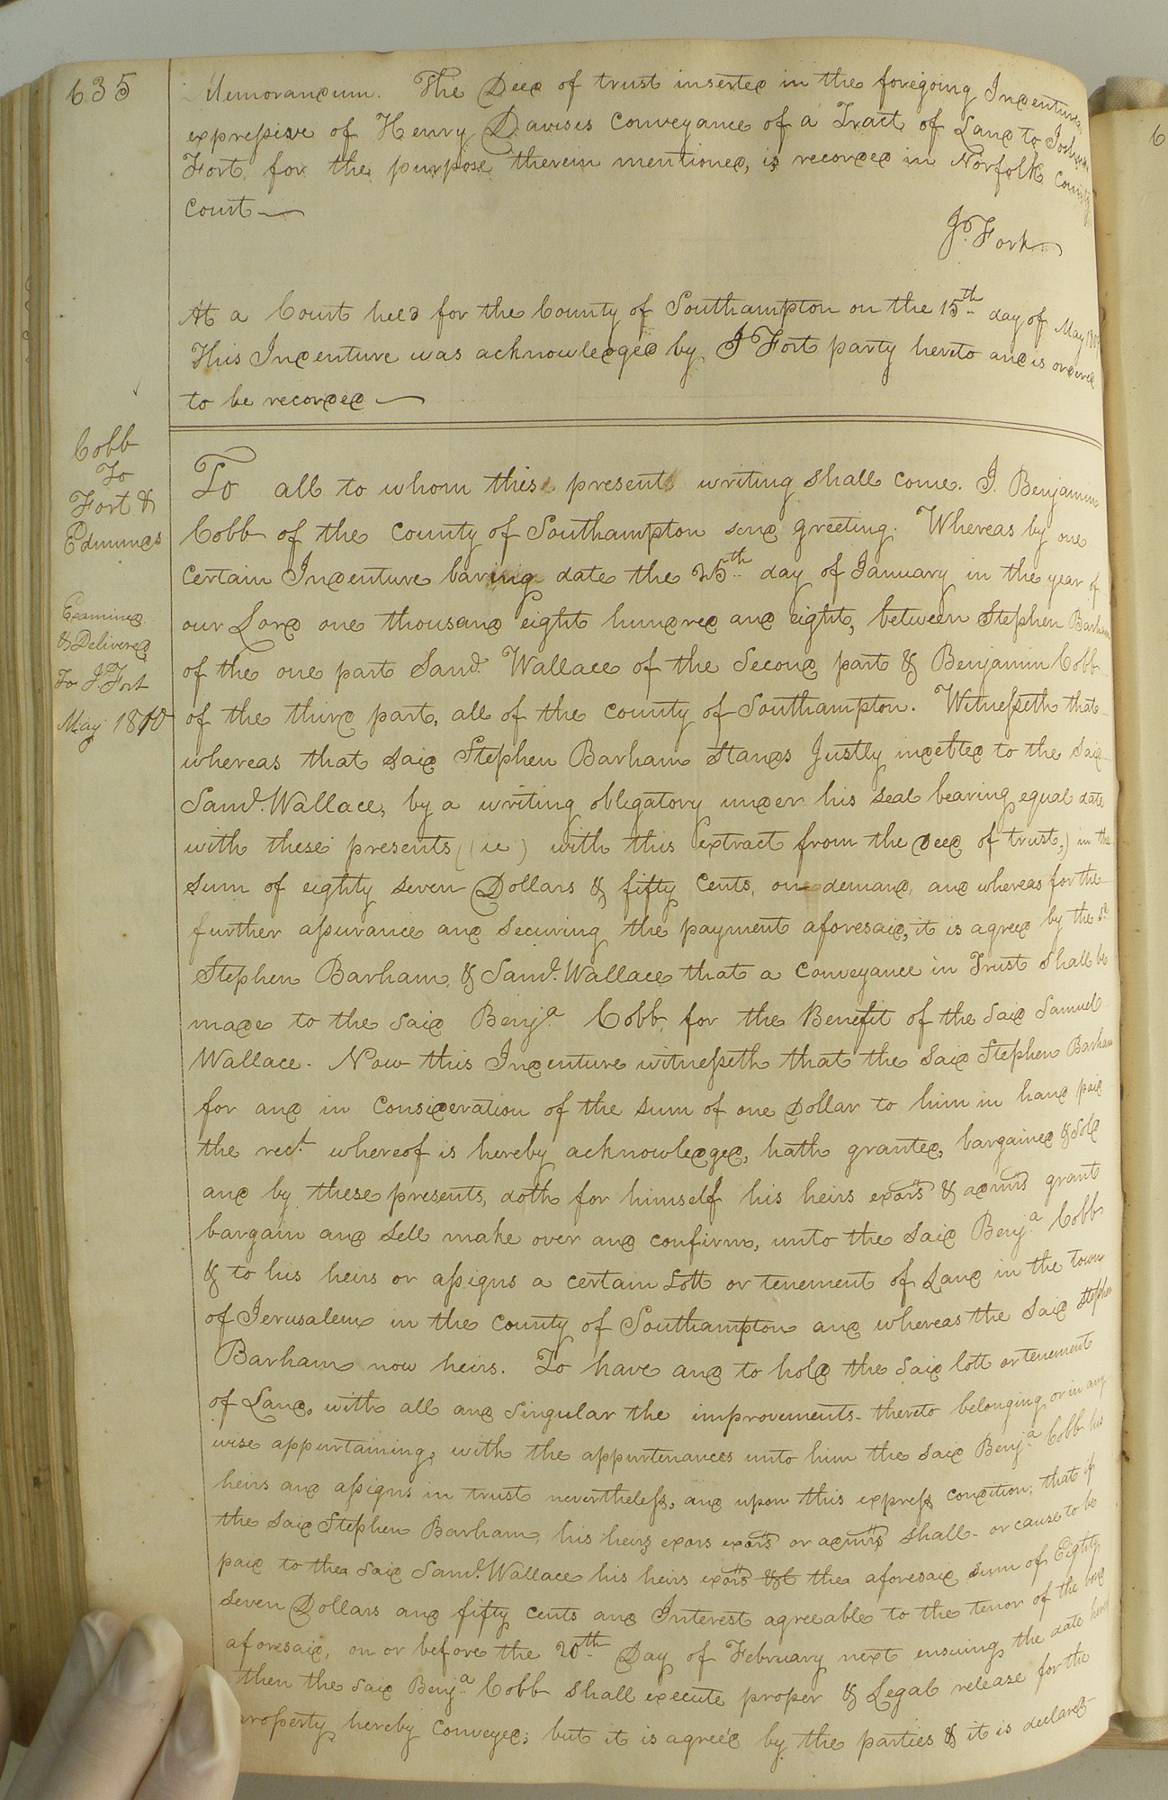 635
Memorandum. The Deed of trust inserted in the foregoing Indenture
expressive of Henry Davises Conveyance of a Tract of Land to Joshua
Fort, for the purpose therein mentioned, is recorded in Norfolk County
Court
J. Fort
At a Court held for the County of Southampton on the 15th day of May
This Indenture was acknowledged by J Fort party hereto and is ordered
to be recorded
Cobb
To
Fort &
Edmunds
Examined
& Delivered
To J. Fort
May 1810
To all to whom this present writing shall come. I. Benjamin
Cobb of the County of Southampton send greeting. Whereas by one
certain Indenture baring date the 25th day of January in the year of
our Lord one thousand eight hundred and eight, between Stephen Barham
of the one part Saml. Wallace of the Second part & Benjamin Cobb
of the third part, all of the county of Southampton. Witnesseth that
whereas that said Stephen Barham Stands Justly indebted to the said
Saml. Wallace, by a writing obligatory under his seal bearing equal date
with these presents (ie) with this extract from the Deed of trust,) in the
sum of eighty seven Dollars & fifty Cents, on demand, and whereas for the
further assurance and securing the payment aforesaid, it is agreed by the sd
Stephen Barham, & Saml. Wallace that a Conveyance in Trust shall be
made to the said Benja Cobb, for the Benefit of the said Samuel
Wallace. Now this Indenture witnesseth that the said Stephen Barham
for and in Consideration of the sum of one Dollar to him in hand paid
the rect. whereof is hereby acknowledged, hath granted, bargained & sold
and by these presents, doth for himself his heirs exors & admrs grant
bargain and sell make over and confirm, unto the said Benja Cobb
& to his heirs or assigns a certain Lott or tenement of Land in the town
of Jerusalem in the county of Southampton and whereas the said Stephen
Barham now heirs. To have and to hold the said lott or tenement
of Land, with all and singular the improvements thereto belonging or in any
wise appurtaining, with the appurtenances unto him the said Benja Cobb his
heirs and assigns in trust nevertheless, and upon this express condition, that if
the said Stephen Barham, his heirs exors exors or admrs shall or cause to be
paid to the said Saml. Wallace his heirs exors &c the aforesaid sum of Eighty
seven Dollars and fifty cents and Interest agreeable to the tenor of the bond
aforesaid, on or before the 20th Day of February next ensuing the date hereof
then the said Benja Cobb shall execute proper & Legal release for the
property hereby conveyed; but it is agree'd by the parties & it is declared